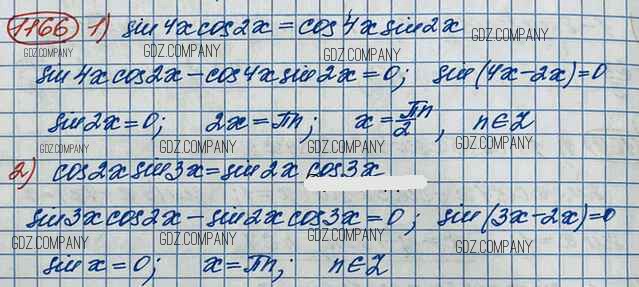 1166 1) sin 4x cos 2x = cos 4x sin 2x
GDZ.COMPANY GDZ.COMPANY GDZ.COMPANY
sin 4x cos 2x - cos 4x sin 2x = 0; sin (4x - 2x) = 0
GDZ.COMPANY GDZ.COMPANY GDZ.COMPANY
sin 2x = 0; 2x = πn; x = πn/2, n ∈ Z
GDZ.COMPANY GDZ.COMPANY GDZ.COMPANY GDZ.COMPANY
2) cos 2x sin 3x = sin 2x cos 3x
GDZ.COMPANY GDZ.COMPANY
sin 3x cos 2x - sin 2x cos 3x = 0; sin (3x - 2x) = 0
GDZ.COMPANY GDZ.COMPANY GDZ.COMPANY GDZ.COMPANY
sin x = 0; x = πn; n ∈ Z